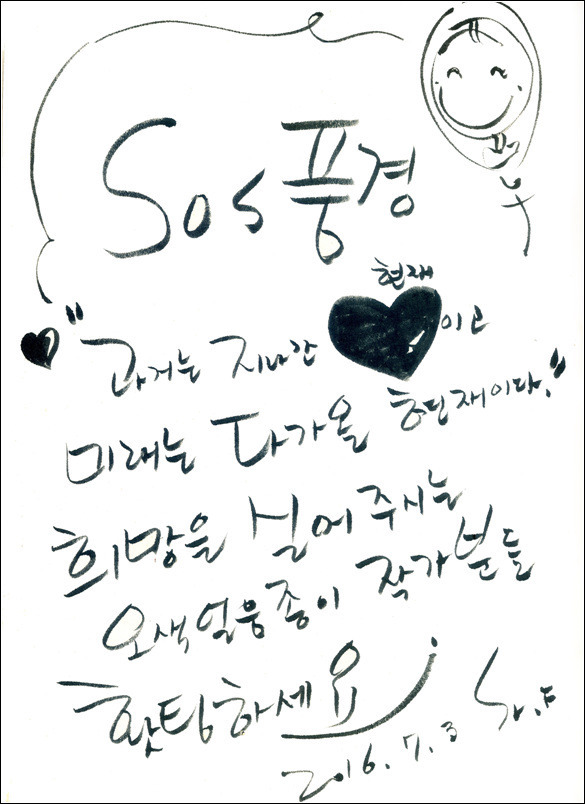 Sos 풍경
현재
"과거는 지나간 이고
미래는 다가올 현재이다."
희망을 실어주시는
오색얼룽종이 작가분들
홧팅하세요
2016. 7. 3